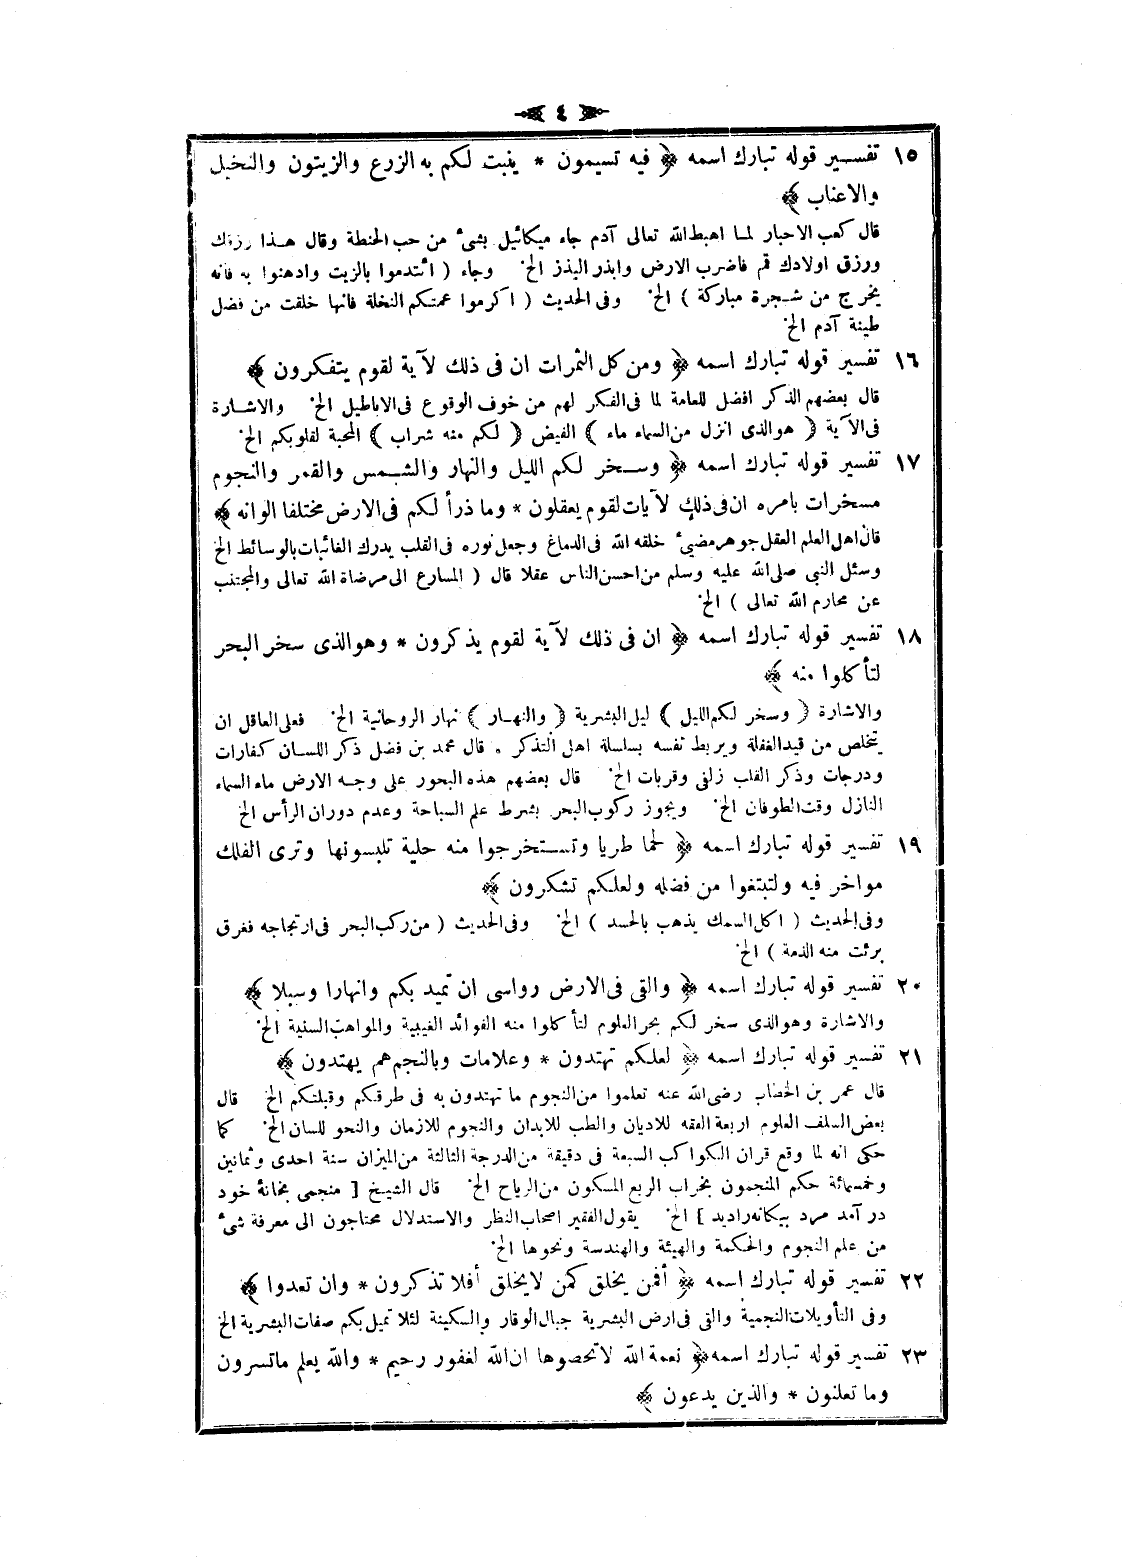 ٤
١٥ تفسير قوله تبارك اسمه ﴿ فيه تسيمون * ينبت لكم به الزرع والزيتون والنخيل
والاعناب ﴾
قال كعب الاحبار لما اهبط الله تعالى آدم جاء ميكائيل بشىء من حب الحنطة وقال هذا رزقك
ورزق اولادك قم فاضرب الارض وابذر البذر الخ. وجاء ( ائتدموا بالزيت وادهنوا به فانه
يخرج من شجرة مباركة ) الخ. وفى الحديث ( اكرموا عمتكم النخلة فانها خلقت من فضل
طينة آدم الخ.
١٦ تفسير قوله تبارك اسمه ﴿ ومن كل الثمرات ان فى ذلك لآية لقوم يتفكرون ﴾
قال بعضهم الذكر افضل للعامة لما فى الفكر لهم من خوف الوقوع فى الاباطيل الخ. والاشارة
فى الآية ( هو الذى انزل من السماء ماء ) الفيض ( لكم منه شراب ) المحبة لقلوبكم الخ.
١٧ تفسير قوله تبارك اسمه ﴿ وسخر لكم الليل والنهار والشمس والقمر والنجوم
مسخرات بامره ان فى ذلك لآيات لقوم يعقلون * وما ذرأ لكم فى الارض مختلفا الوانه ﴾
قال اهل العلم العقل جوهر مضىء خلقه الله فى الدماغ وجعل نوره فى القلب يدرك الغائبات بالوسائط الخ
وسئل النبى صلى الله عليه وسلم من احسن الناس عقلا قال ( المسارع الى مرضاة الله تعالى والمجتنب
عن محارم الله تعالى ) الخ.
١٨ تفسير قوله تبارك اسمه ﴿ ان فى ذلك لآية لقوم يذكرون * وهو الذى سخر البحر
لتأكلوا منه ﴾
والاشارة ( وسخر لكم الليل ) ليل البشرية ( والنهار ) نهار الروحانية الخ. فعلى العاقل ان
يتخلص من قيد الغفلة ويربط نفسه بسلسلة اهل التذكر . قال محمد بن فضل ذكر اللسان كفارات
ودرجات وذكر القلب زلفى وقربات الخ. قال بعضهم هذه البحور على وجه الارض ماء السماء
النازل وقت الطوفان الخ. ويجوز ركوب البحر بشرط علم السباحة وعدم دوران الرأس الخ
١٩ تفسير قوله تبارك اسمه ﴿ لحما طريا وتستخرجوا منه حلية تلبسونها وترى الفلك
مواخر فيه ولتبتغوا من فضله ولعلكم تشكرون ﴾
وفى الحديث ( اكل السمك يذهب بالجسد ) الخ. وفى الحديث ( من ركب البحر فى ارتجاجه فغرق
برئت منه الذمة ) الخ.
٢٠ تفسير قوله تبارك اسمه ﴿ والقى فى الارض رواسى ان تميد بكم وانهارا وسبلا ﴾
والاشارة وهو الذى سخر لكم بحر العلوم لتأكلوا منه الفوائد الغيبية والمواهب السنية الخ.
٢١ تفسير قوله تبارك اسمه ﴿ لعلكم تهتدون * وعلامات وبالنجم هم يهتدون ﴾
قال عمر بن الخطاب رضى الله عنه تعلموا من النجوم ما تهتدون به فى طرقكم وقبلتكم الخ. قال
بعض السلف العلوم اربعة الفقه للاديان والطب للابدان والنجوم للازمان والنحو للسان الخ. كما
حكى انه لما وقع قران الكواكب السبعة فى دقيقة من الدرجة الثالثة من الميزان سنة احدى وثمانين
وخمسمائة حكم المنجمون بخراب الربع المسكون من الرياح الخ. قال الشيخ [ منجمى بخانهٔ خود
در آمد مرد بيكانه راديد ] الخ. يقول الفقير اصحاب النظر والاستدلال محتاجون الى معرفة شىء
من علم النجوم والحكمة والهيئة والهندسة ونحوها الخ.
٢٢ تفسير قوله تبارك اسمه ﴿ أفمن يخلق كمن لا يخلق أفلا تذكرون * وان تعدوا ﴾
وفى التأويلات النجمية والقى فى ارض البشرية جبال الوقار والسكينة لئلا تميل بكم صفات البشرية الخ
٢٣ تفسير قوله تبارك اسمه ﴿ نعمة الله لا تحصوها ان الله لغفور رحيم * والله يعلم ما تسرون
وما تعلنون * والذين يدعون ﴾